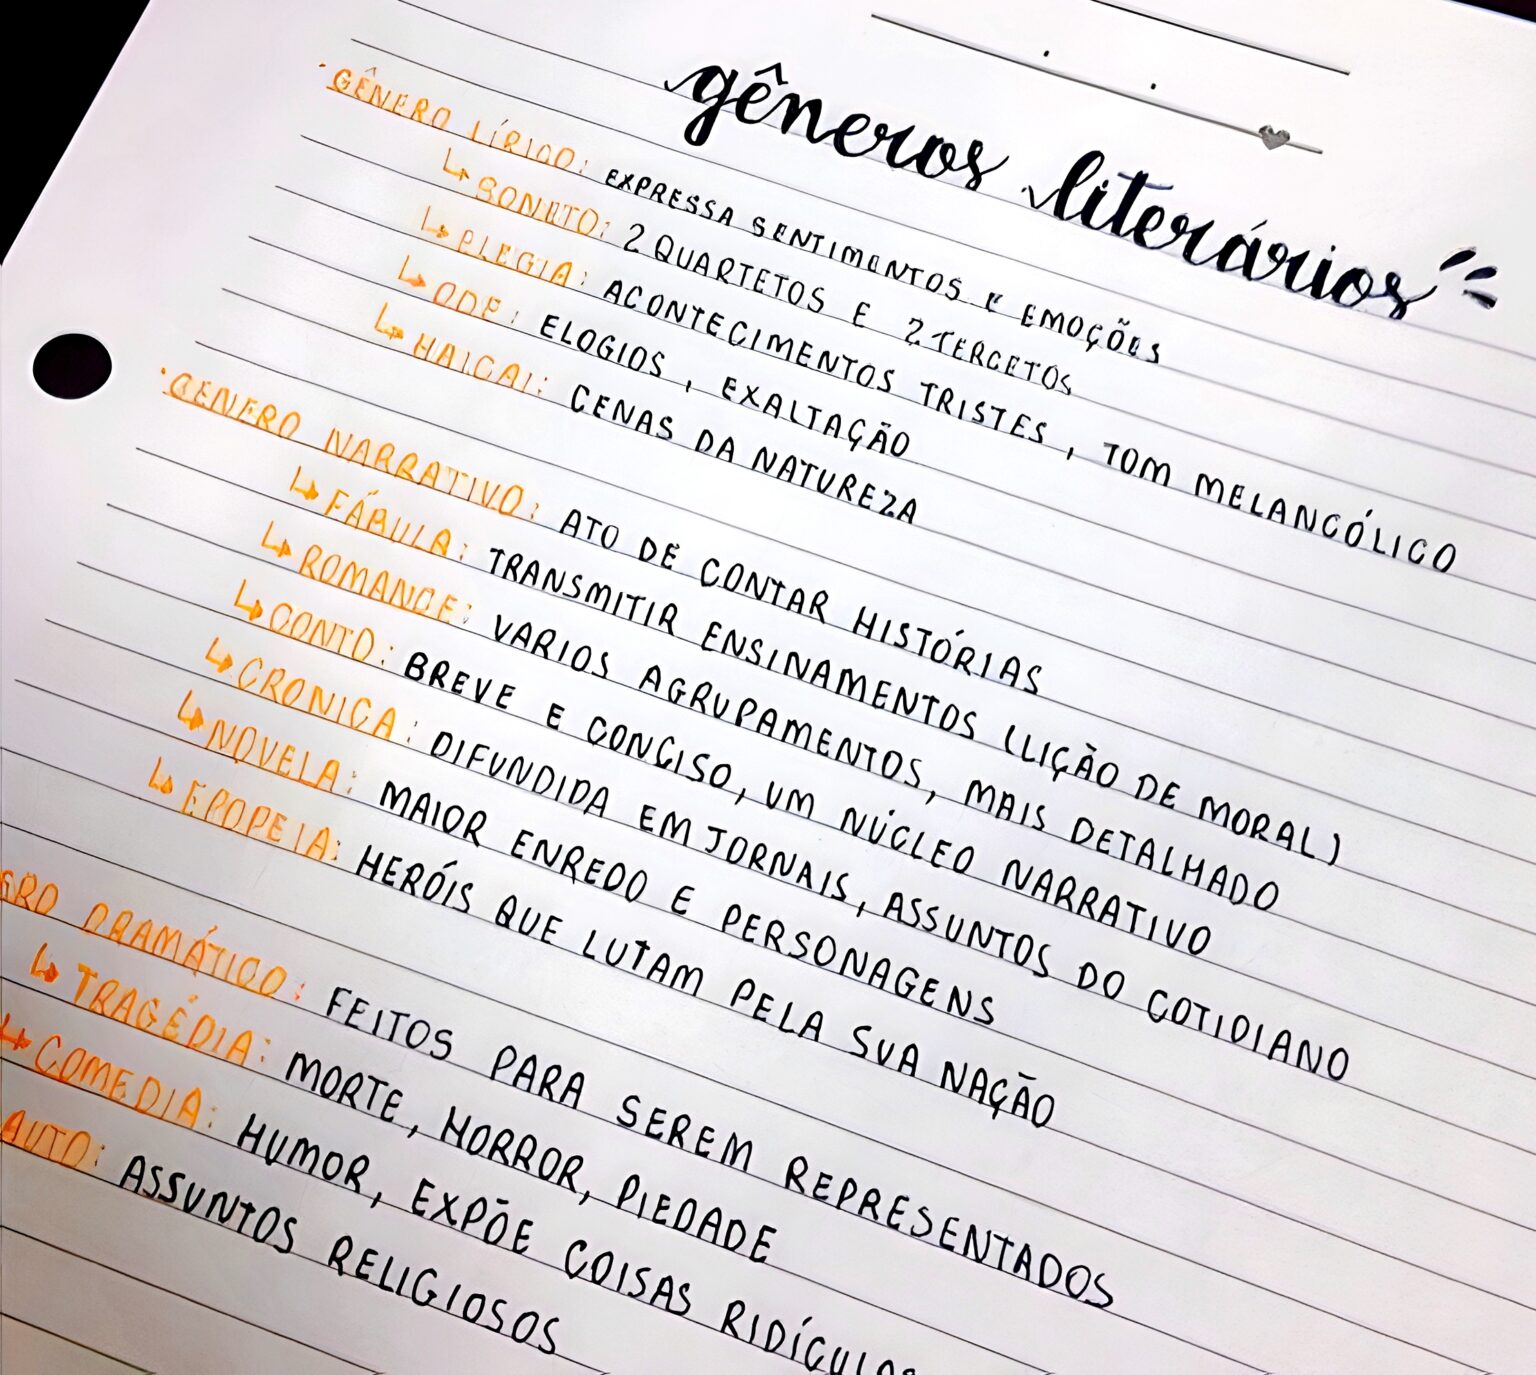 gêneros literários
• GÊNERO LÍRICO: EXPRESSA SENTIMENTOS E EMOÇÕES
↳ SONETO: 2 QUARTETOS E 2 TERCETOS
↳ ELEGIA: ACONTECIMENTOS TRISTES, TOM MELANCÓLICO
↳ ODE: ELOGIOS, EXALTAÇÃO
↳ HAICAI: CENAS DA NATUREZA
• GÊNERO NARRATIVO: ATO DE CONTAR HISTÓRIAS
↳ FÁBULA: TRANSMITIR ENSINAMENTOS (LIÇÃO DE MORAL)
↳ ROMANCE: VARIOS AGRUPAMENTOS, MAIS DETALHADO
↳ CONTO: BREVE E CONCISO, UM NÚCLEO NARRATIVO
↳ CRONICA: DIFUNDIDA EM JORNAIS, ASSUNTOS DO COTIDIANO
↳ NOVELA: MAIOR ENREDO E PERSONAGENS
↳ EPOPEIA: HERÓIS QUE LUTAM PELA SUA NAÇÃO
DRAMÁTICO: FEITOS PARA SEREM REPRESENTADOS
↳ TRAGÉDIA: MORTE, HORROR, PIEDADE
↳ COMEDIA: HUMOR, EXPÕE COISAS
AUTO: ASSUNTOS RELIGIOSOS